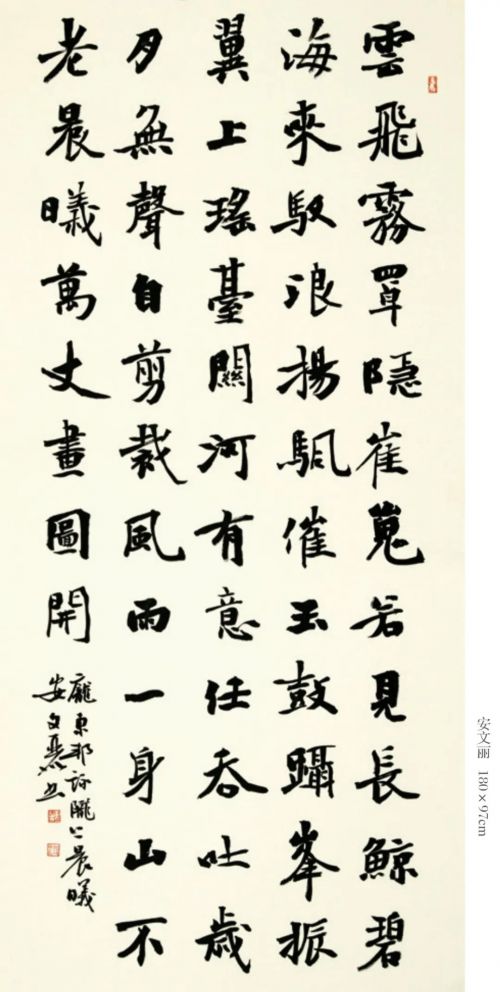 雲飛霧罩隱崔嵬若見長鯨碧
海來馭浪揚颿催玉鼓躡峯振
翼上瑤臺關河有意任吞吐歲
月無聲自剪裁風雨一身山不
老晨曦萬丈畫圖開
龐東 晨曦
安文麗書
安文丽 180×97cm